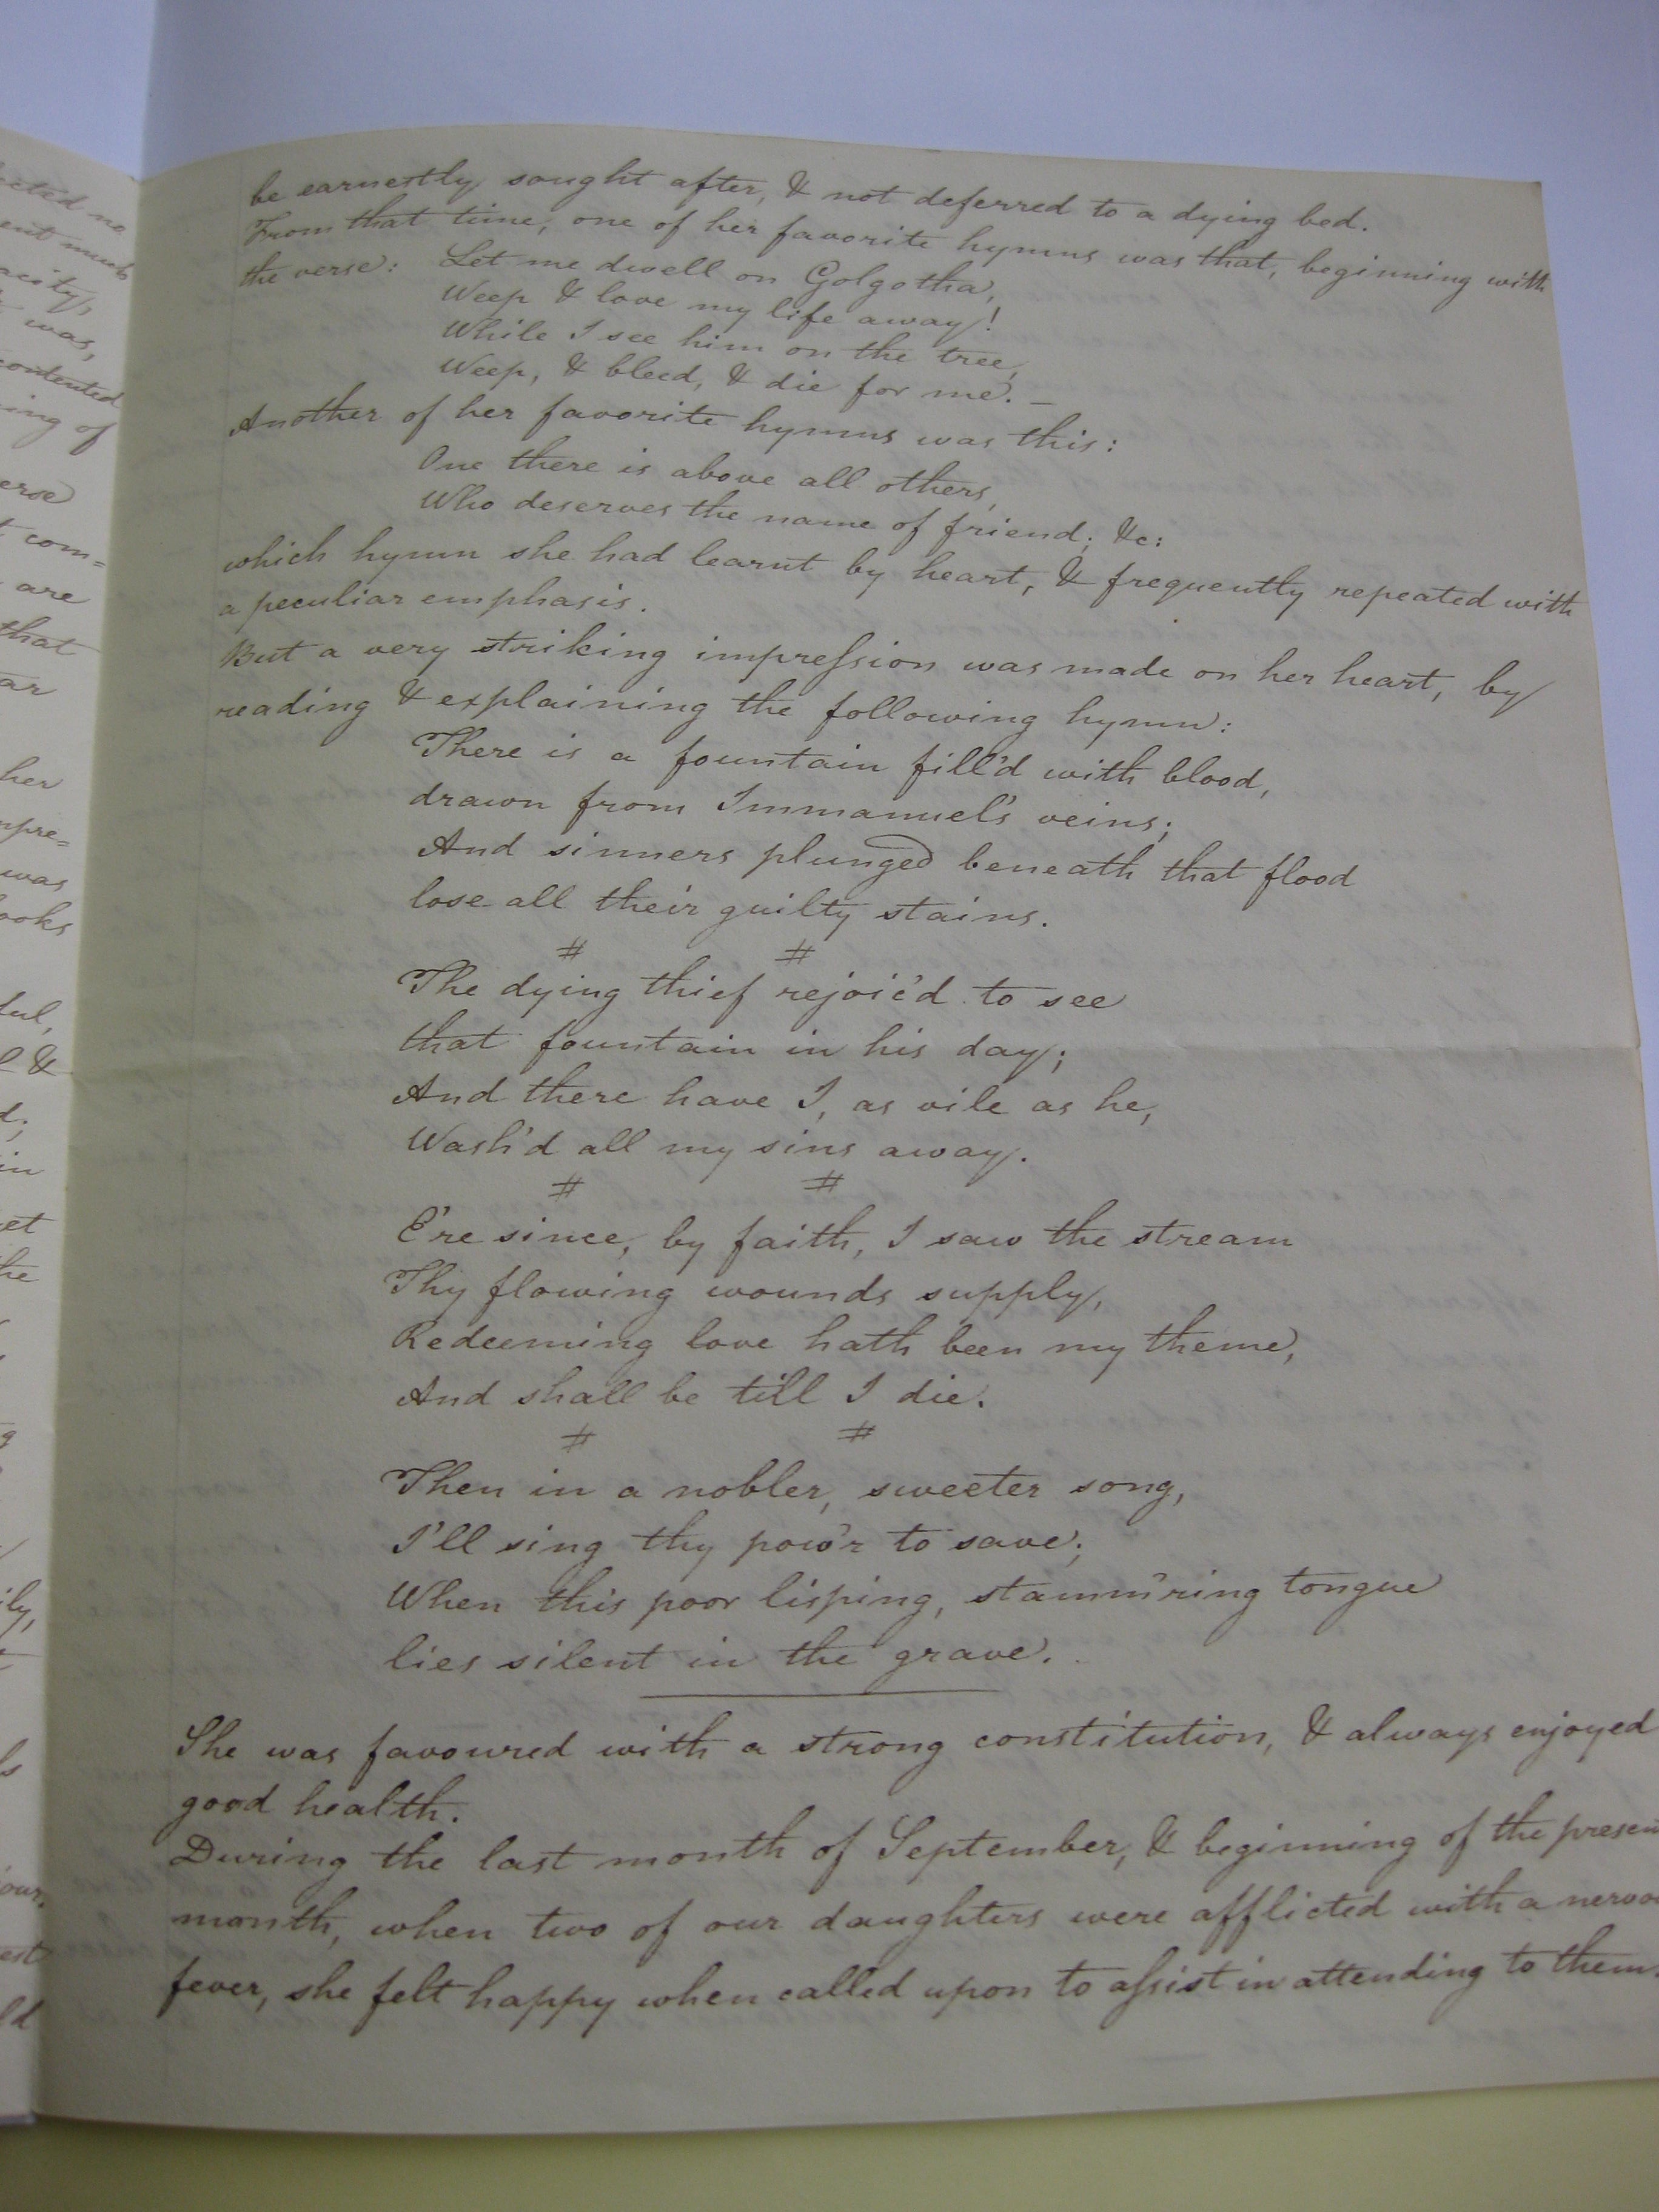 be earnestly sought after, & not deferred to a dying bed.
From that time, one of her favorite hymns was that, beginning with
the verse: Let me dwell on Golgotha,
Weep & love my life away!
While I see him on the tree,
Weep, & bleed, & die for me. —
Another of her favorite hymns was this:
One there is above all others,
Who deserves the name of friend; &c:
which hymn she had learnt by heart, & frequently repeated with
a peculiar emphasis.
But a very striking impreſsion was made on her heart, by
reading & explaining the following hymn:
There is a fountain fill'd with blood,
drawn from Immanuel's veins;
And sinners plunged beneath that flood
lose all their guilty stains.
# #
The dying thief rejoic'd to see
that fountain in his day;
And there have I, as vile as he,
Wash'd all my sins away.
# #
E're since, by faith, I saw the stream
Thy flowing wounds supply,
Redeeming love hath been my theme,
And shall be till I die.
# #
Then in a nobler, sweeter song,
I'll sing thy pow'r to save;
When this poor lisping, stamm'ring tongue
lies silent in the grave.
She was favoured with a strong constitution, & always enjoyed
good health.
During the last month of September, & beginning of the presen
month, when two of our daughters were afflicted with a nervo
fever, she felt happy when called upon to aſsist in attending to them.